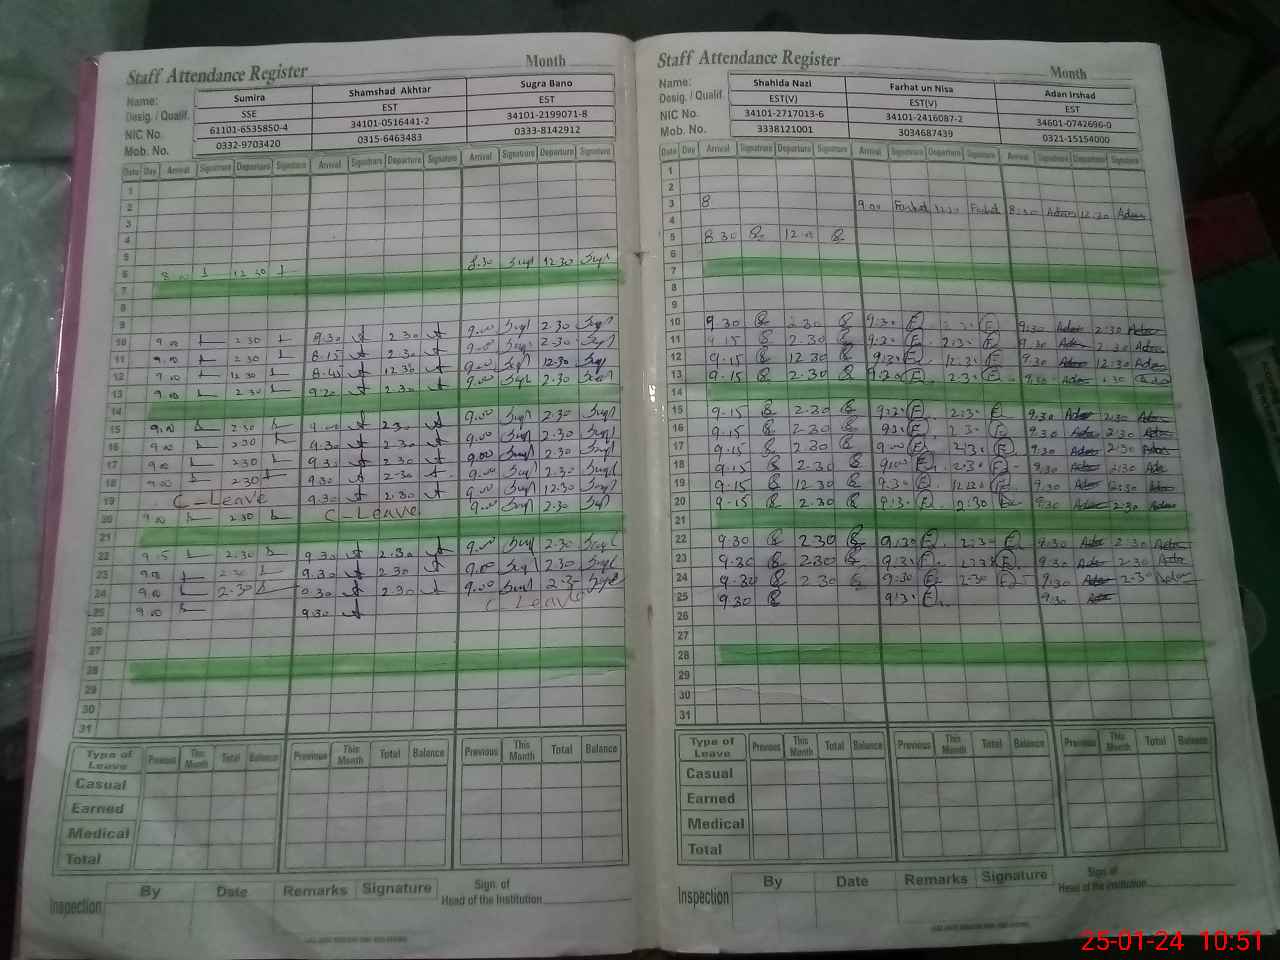 Staff Attendance Register Month
Name: Sumira Shamshad Akhtar Sugra Bano
Desig. / Qualif. SSE EST EST
NIC No. 61101-6535850-4 34101-0516441-2 34101-2199071-8
Mob. No. 0332-9703420 0315-6463483 0333-8142912
Date Day Arrival Signature Departure Signature Arrival Signature Departure Signature Arrival Signature Departure Signature
1
2
3
4
5
6 8.00 12.30 8.30 12.30
7
8
9
10 9.00 2.30 9.30 2.30 9.00 2.30
11 9.00 2.30 8.15 2.30 9.00 2.30
12 9.00 12.30 8.45 12.30 9.00 12.30
13 9.00 2.30 9.20 2.30 9.00 2.30
14
15 9.00 2.30 9.00 2.30 9.00 2.30
16 9.00 2.30 9.30 2.30 9.00 2.30
17 9.00 2.30 9.30 2.30 9.00 2.30
18 9.00 2.30 9.30 2.30 9.00 2.30
19 C-Leave 9.30 2.30 9.00 12.30
20 9.00 2.30 C-Leave 9.00 2.30
21
22 9.15 2.30 9.30 2.30 9.00 2.30
23 9.00 2.30 9.30 2.30 9.00 2.30
24 9.00 2.30 9.30 2.30 9.00 2.3
25 9.00 9.30 C Leave
26
27
28
29
30
31
Type of Leave Previous This Month Total Balance Previous This Month Total Balance Previous This Month Total Balance
Casual
Earned
Medical
Total
Inspection By Date Remarks Signature Sign. of Head of the Institution
Staff Attendance Register Month
Name: Shahida Nazi Farhat un Nisa Adan Irshad
Desig. / Qualif. EST(V) EST(V) EST
NIC No. 34101-2717013-6 34101-2416087-2 34601-0742696-0
Mob. No. 3338121001 3034687439 0321-15154000
Date Day Arrival Signature Departure Signature Arrival Signature Departure Signature Arrival Signature Departure Signature
1
2
3 8 9.00 Farhat 12.30 Farhat 8:30 Adan 12:30 Adan
4
5 8 30 12.00
6
7
8
9
10 9.30 2.30 9:30 E 2:30 E 9:30 Adan 2:30 Adan
11 9.15 2.30 9:30 E 2:30 E 9:30 Adan 2:30 Adan
12 9.15 12.30 9:30 E 12.30 E 9:30 Adan 12:30 Adan
13 9.15 2.30 9:20 E 2:30 E 9:30 Adan
14
15 9.15 2.30 9:30 E 2:30 E 9:30 Adan 2:30 Adan
16 9.15 2.30 9:30 E 2:30 E 9:30 Adan 2:30 Adan
17 9.15 2.30 9:00 E 2:30 E 9:30 Adan 2:30 Adan
18 9.15 2.30 9:00 E 2:30 E 9:30 Adan 2:30 Adan
19 9.15 12.30 9:30 E 12:30 E 9:30 Adan 12:30 Adan
20 9.15 2.30 9:30 E 2:30 E 9:30 Adan 2:30 Adan
21
22 9.30 2.30 9:30 E 2:30 E 9:30 Adan 2:30 Adan
23 9.30 2.30 9:30 E E 9:30 Adan 2:30 Adan
24 9.30 2 30 9:30 E 2:30 E 9:30 Adan 2:30 Adan
25 9.30 9:30 E 9:30 Adan
26
27
28
29
30
31
Type of Leave Previous This Month Total Balance Previous This Month Total Balance Previous This Month Total Balance
Casual
Earned
Medical
Total
Inspection By Date Remarks Signature Sign. of Head of the Institution
25-01-24 10:51